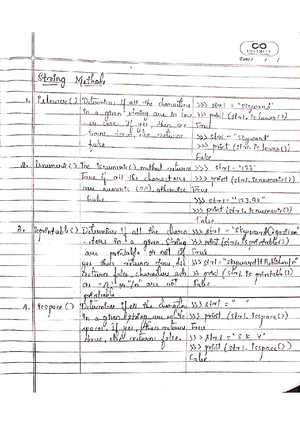 INFINITY
Date: / /
String Methods
1. islower() Determines if all the characters >>> str1 = "skyward"
in a given string are in low >>> print (str1.islower())
-er case. If yes then re True
-turns true, else returns >>> str1 = "skyward"
false >>> print (str1.islower())
False
2. isnumeric() The isnumeric() method returns >>> str1 = "123"
True if all the characters >>> print (str1.isnumeric())
are numeric (0-9), otherwise True
False >>> str1 = "23.98"
>>> print (str1.isnumeric())
False
isprintable() Determines if all the charac >>> str1 =
-ters in a given string >>> print (str1.isprintable())
are printable or not If True
yes then returns true else >>> str1 =
returns false, characters >>> print (str1.isprintable())
as "\n" are not False
printable
4. isspace() Determines if all the characters >>> str1 = " "
in a given string are white >>> print (str1.isspace())
spaces if yes, then returns True
true, else returns false. >>> str1 =
>>> print (str1.isspace())
False